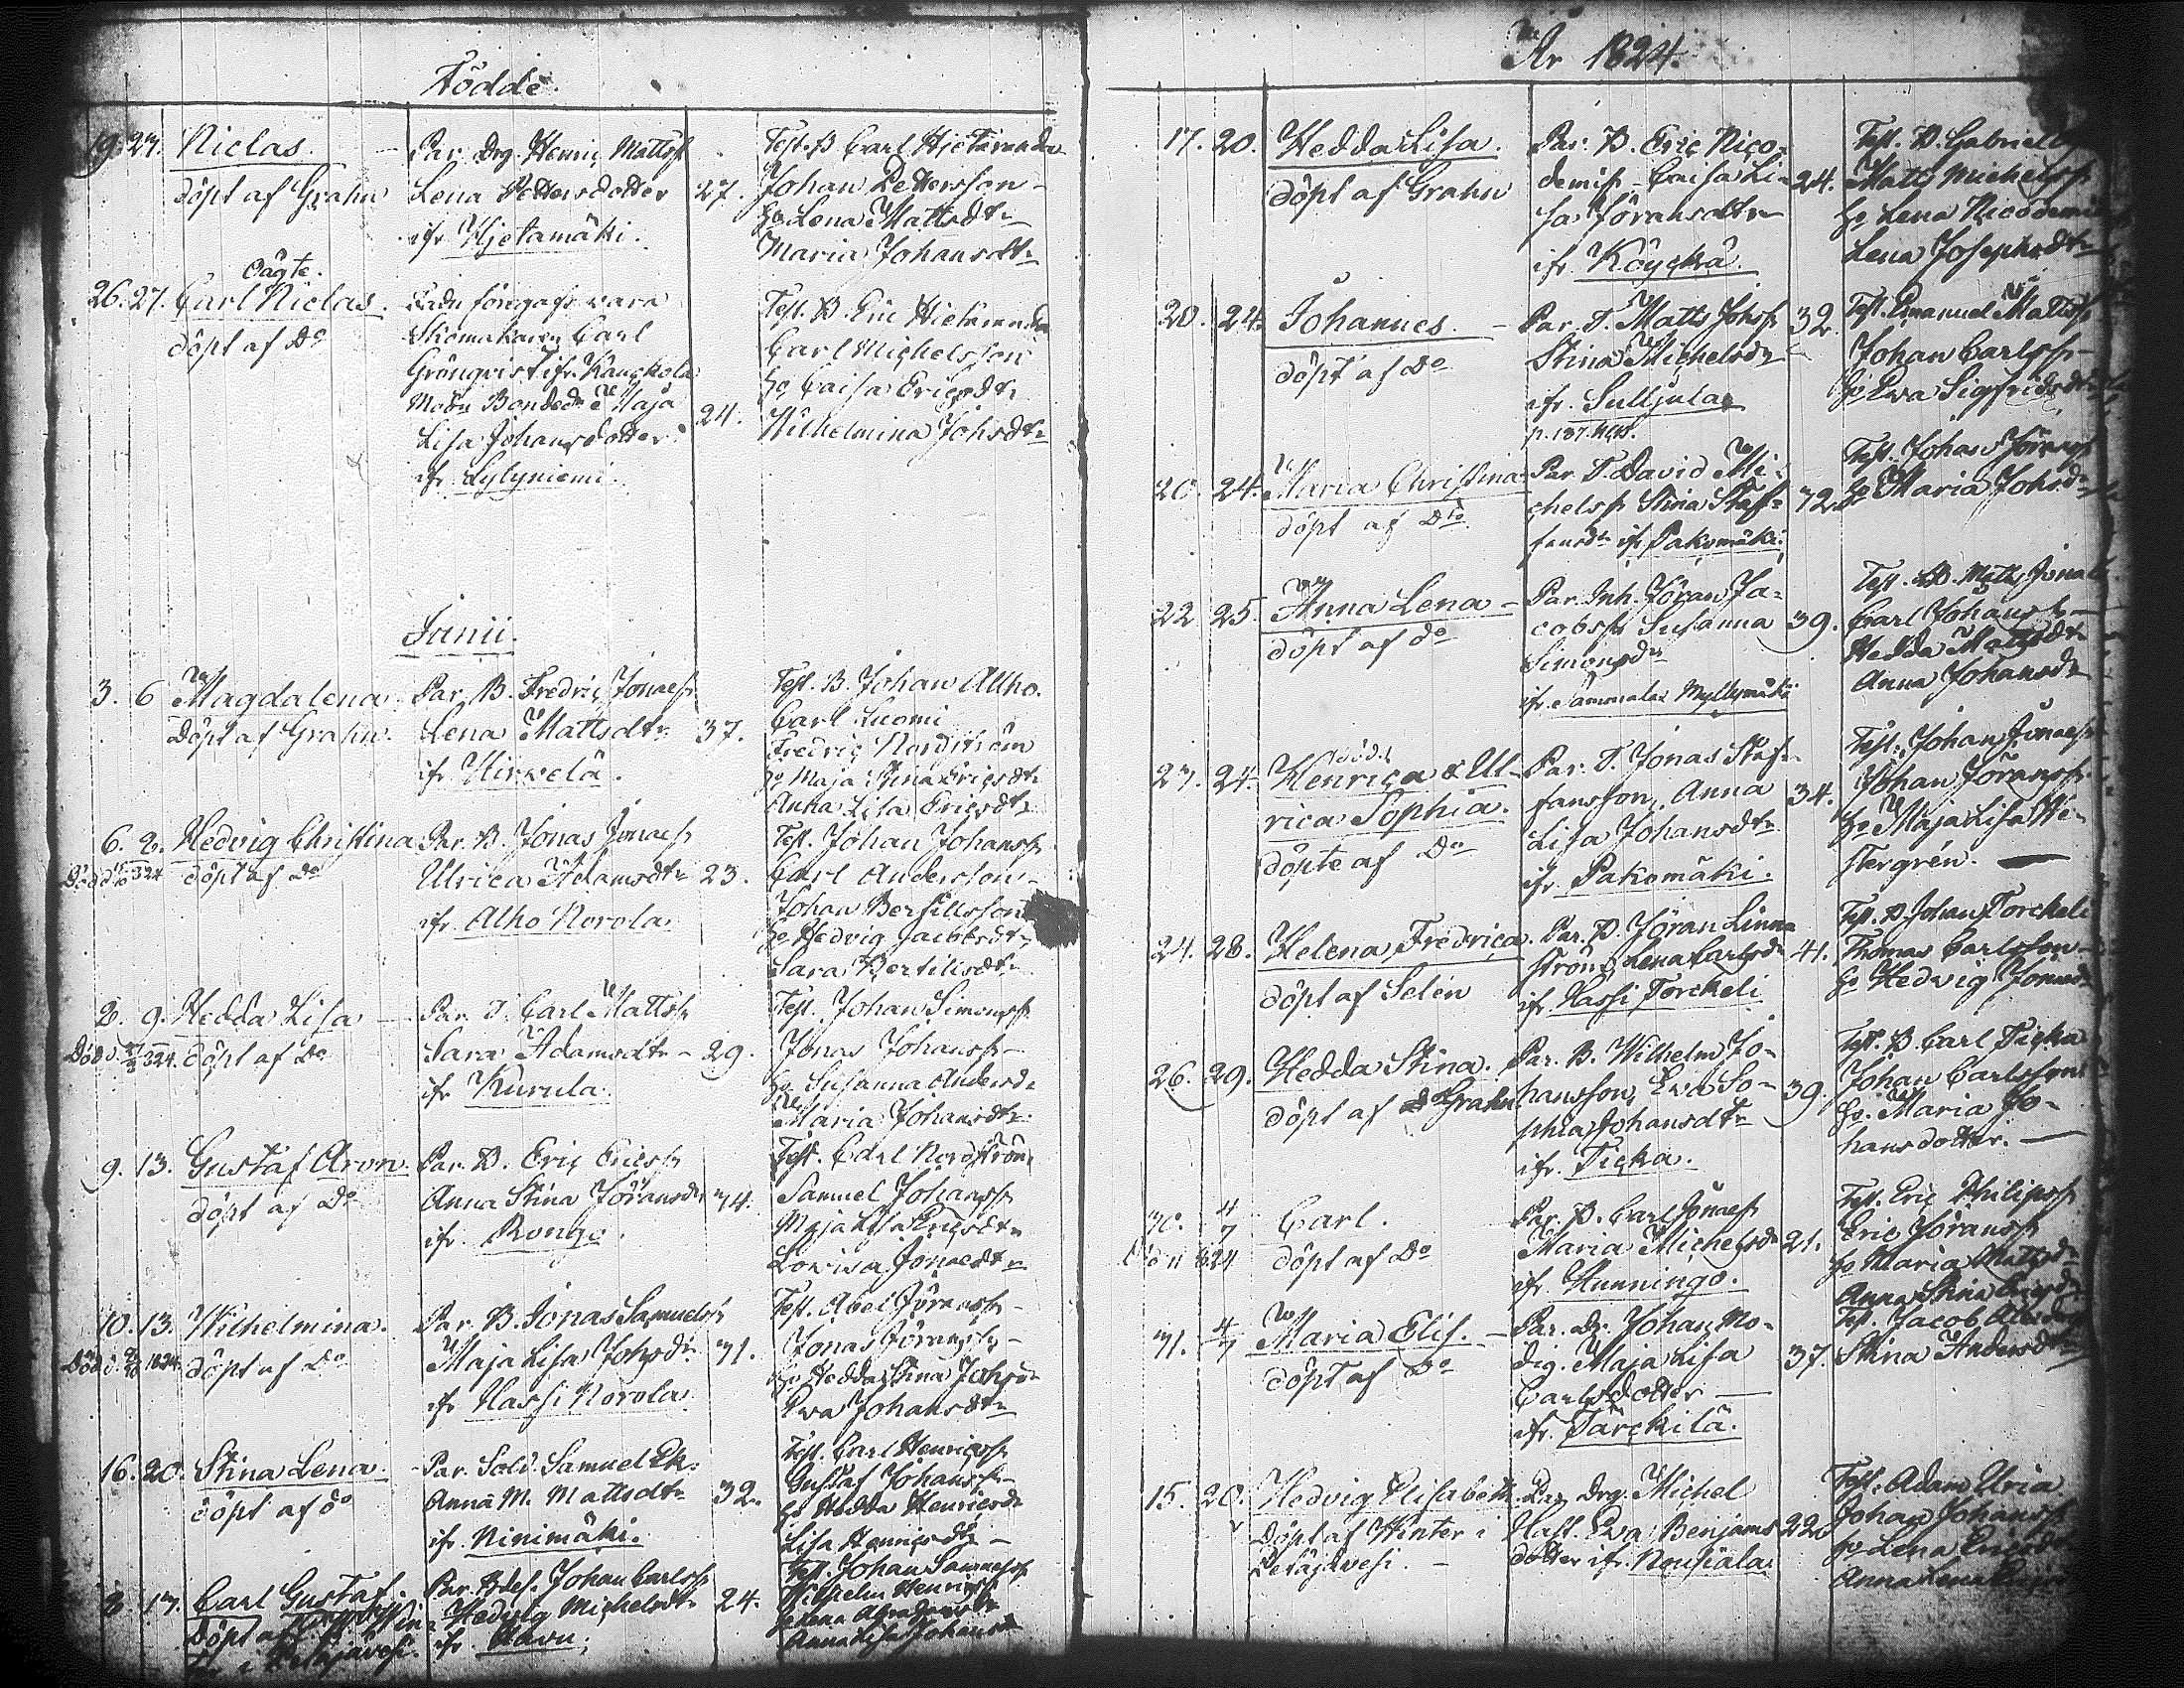 Födde
19. 27. Niclas.
döpt af Grahn
Par. Drg. Henric Mattss
Lena Pettersdotter
ifr. Hjetamäki.
27.
Test. B Carl Hjetamäki
Johan Pettersson
ho Lena Mattsdtr
Maria Johansdtr
Oägte.
26. 27. Carl Niclas.
döpt af Do
Fadn föregafs vara
Skomakaren Carl
Grönqvist ifr. Kauckola
Modn Bondedtr Maja
Lisa Johansdotter
ifr. Lylyniemi.
24.
Test. B. Eric Hietamäki
Carl Michelsson
ho Caisa Ericsdtr
Wilhelmina Johsdtr
Junii.
3. 6 Magdalena
Döpt af Grahn.
Par. B. Fredric Jonaess
Lena Mattsdtr
ifr. Hirvelä.
37.
Test. B. Johan Alho.
Carl Luomi
Fredric Nordström
ho Maja Stina Ericsdtr
Anna Lisa Ericsdtr
6. 8. Hedvig Christina
döpt af Do
Par. B. Jonas Jonaess
Ulrica Adamsdtr
ifr. Alho Norola.
23.
Test. Johan Johanss
Carl Andersson
Johan Bertillsson
ho Hedvig Jacobsdtr
Sara Bertilsdtr
8. 9. Hedda Lisa
döpt af Do
Par. T. Carl Mattss
Sara Adamsdtr
ifr Kurula.
29.
Test. Johan Simonss
Jonas Johanss
ho Susanna Andersdr
Maria Johansdtr.
9. 13. Gustaf Aron.
döpt af Do
Par. B. Eric Ericss
Anna Stina Jöransdr
ifr. Rongo.
34.
Test. Carl Nordström
Samuel Johanss
Maja Lisa Ericsdtr
Lovisa Jonaedtr
10. 13. Wilhelmina.
döpt af Do
Par. B. Jonas Samuelss
Maja Lisa Johsdr
ifr Hassi Norola
31.
Test. Abel Jöranss
Jonas Jöranss
ho Hedda Stina Johsdr
Eva Johansdtr
16. 20. Stina Lena.
döpt af do
Par. Sold. Samuel Ek.
Anna M. Mattsdtr
ifr. Ninimäki.
32.
Test. Carl Henricss
Gustaf Johanss
ho Hedda Henricsdr
Lisa Henricsdtr
8. 13. Carl Gustaf.
Par. Johan Carlss
Hedvig Michelsdtr
ifr.
24.
Test. Johan
Wilhelm Henricss
Anna Lisa Johansdr
År 1824.
17. 20. Hedda Lisa.
döpt af Grahn
Par. B. Eric Nico-
demiss Caisa Li-
sa Jöransdtr
ifr. Röyckä.
24.
Test. B. Gabriel
Matts Michelss
ho Lena Nicodemi
Lena Josephsdtr
20. 24. Johannes.
döpt af Do
Par. T. Matts Johss
Stina Michelsdr
ifr. Sulljula
32.
Test. Emanuel Mattss
Johan Carlss
ho Eva Sigfridsdtr
20. 24. Maria Christina
döpt af Do
Par. T. David Mi-
chelss Stina Staf-
fansdr ifr Pakomäki.
32.
Test. Johan Jöranss
ho Maria Johsdr
22 25. Anna Lena
döpt af do
Par. Inh. Jöran Ja-
cobss Susanna
Simonsdr
ifr. Sammala Myllymäki
39.
Test. B. Matts
Carl Johanss
Hedda Mattsdtr
Anna Johansdtr
23. 24. Henrica & Ul-
rica Sophia.
döpte af Do
Par. T. Jonas Staf-
fansson, Anna
Lisa Johansdtr
ifr. Pakomäki.
34.
Test. Johan Jonaess
Johan Jöranss
ho Maja Lisa We-
stergrén.
24. 28. Helena Fredrica
döpt af Selén
Par. B. Jöran Linna
ström Lena Carlsdr
ifr. Hassi Torckeli
41.
Test. B Johan Torckeli
Thomas Carlsson
ho Hedvig
26. 29. Hedda Stina.
döpt af Grahn
Par. B. Wilhelm Jo-
hansson, Eva So-
phia Johansdtr
ifr. Ticka.
39.
Test. B. Carl Ticka
Johan Carlsson
ho. Maria Jo-
hansdotter.
30. 4/7 Carl.
döpt af Do
Par. B. Carl Jonaess
Maria Michelsdr
ifr. Hunningo.
21.
Test. Eric Philipss
Eric Jöranss
ho Maria Mattsdr
Anna Stina Ericsdr
31. 4/7 Maria Elis.
döpt af Do
Par. Dr. Johan Mo-
dig. Maja Lisa
Carlsdotter
ifr. Tärckilä.
37.
Test. Jacob
Stina Andersdtr
15. 20. Hedvig Elisabeth
Döpt af Winter i
Petäjävesi.
Par. Drg. Michel
Haff. Eva Benjams
dotter ifr. Nousiala.
22.
Test. Adam Uria
Johan Johanss
ho Lena
Anna Lena